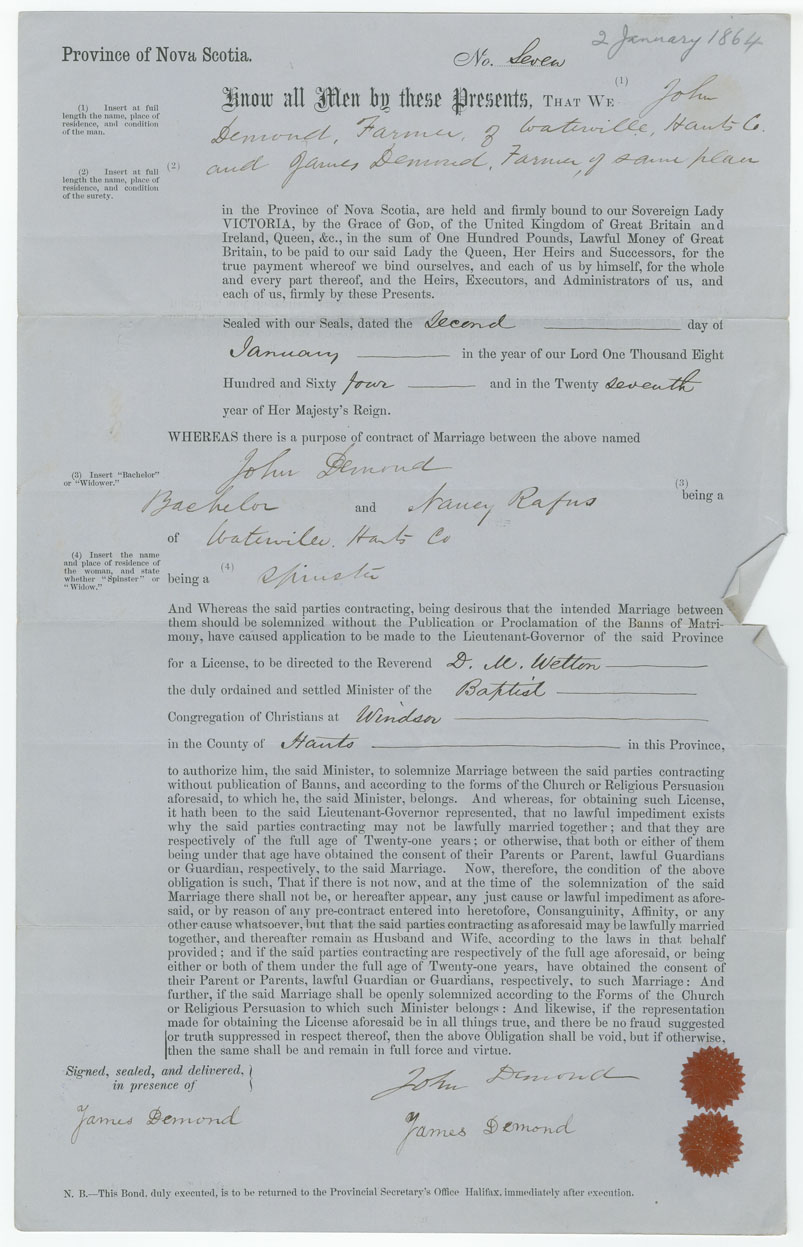 2 January 1864
Province of Nova Scotia.
No. Seven
(1)
Know all Men by these Presents, THAT WE John
(1) Insert at full
length the name, place of
residence, and condition
of the man.
Demond, Farmer, of Waterville, Hants Co.
(2)
and James Demond, Farmer, of same place
(2) Insert at full
length the name, place of
residence, and condition
of the surety.
in the Province of Nova Scotia, are held and firmly bound to our Sovereign Lady
VICTORIA, by the Grace of GOD, of the United Kingdom of Great Britain and
Ireland, Queen, &c., in the sum of One Hundred Pounds, Lawful Money of Great
Britain, to be paid to our said Lady the Queen, Her Heirs and Successors, for the
true payment whereof we bind ourselves, and each of us by himself, for the whole
and every part thereof, and the Heirs, Executors, and Administrators of us, and
each of us, firmly by these Presents.
Sealed with our Seals, dated the Second day of
January in the year of our Lord One Thousand Eight
Hundred and Sixty four and in the Twenty seventh
year of Her Majesty's Reign.
WHEREAS there is a purpose of contract of Marriage between the above named
John Demond
(3) Insert "Bachelor"
or "Widower."
(3)
being a
Bachelor and Nancy Rafus
of Waterville, Hants Co
(4) Insert the name
and place of residence of
the woman, and state
whether "Spinster" or
"Widow."
(4)
being a Spinster
And Whereas the said parties contracting, being desirous that the intended Marriage between
them should be solemnized without the Publication or Proclamation of the Banns of Matri-
mony, have caused application to be made to the Lieutenant-Governor of the said Province
for a License, to be directed to the Reverend D. M. Welton
the duly ordained and settled Minister of the Baptist
Congregation of Christians at Windsor
in the County of Hants in this Province,
to authorize him, the said Minister, to solemnize Marriage between the said parties contracting
without publication of Banns, and according to the forms of the Church or Religious Persuasion
aforesaid, to which he, the said Minister, belongs. And whereas, for obtaining such License,
it hath been to the said Lieutenant-Governor represented, that no lawful impediment exists
why the said parties contracting may not be lawfully married together; and that they are
respectively of the full age of Twenty-one years; or otherwise, that both or either of them
being under that age have obtained the consent of their Parents or Parent, lawful Guardians
or Guardian, respectively, to the said Marriage. Now, therefore, the condition of the above
obligation is such, That if there is not now, and at the time of the solemnization of the said
Marriage there shall not be, or hereafter appear, any just cause or lawful impediment as afore-
said, or by reason of any pre-contract entered into heretofore, Consanguinity, Affinity, or any
other cause whatsoever, but that the said parties contracting as aforesaid may be lawfully married
together, and thereafter remain as Husband and Wife, according to the laws in that behalf
provided; and if the said parties contracting are respectively of the full age aforesaid, or being
either or both of them under the full age of Twenty-one years, have obtained the consent of
their Parent or Parents, lawful Guardian or Guardians, respectively, to such Marriage: And
further, if the said Marriage shall be openly solemnized according to the Forms of the Church
or Religious Persuasion to which such Minister belongs: And likewise, if the representation
made for obtaining the License aforesaid be in all things true, and there be no fraud suggested
or truth suppressed in respect thereof, then the above Obligation shall be void, but if otherwise,
then the same shall be and remain in full force and virtue.
Signed, sealed, and delivered,
in presence of
John Demond
James Demond
James Demond
N. B.—This Bond, duly executed, is to be returned to the Provincial Secretary's Office Halifax, immediately after execution.